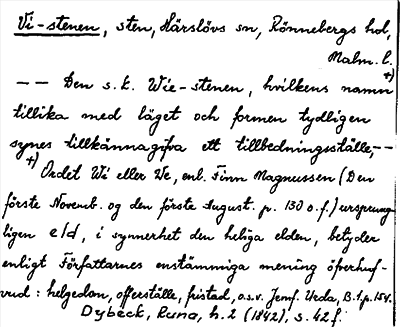 Vi-stenen, sten, Härslövs sn, Rönnebergs hd,
Malm. l.
-- Den s. k. Wie-stenen, hvilkens namn +)
tillika med läget och formen tydligen
synes tillkännagifva ett tillbedningsställe,--
+) Ordet Wi eller We, enl. Finn Magnussen (Den
förste Novemb. og den förste August. p. 130 o.f.) ursprung-
ligen eld, i synnerhet den heliga elden, betyder
enligt Författarnes enstämmiga mening öfverhuf-
vud: helgedom, offerställe, fristad, o.s.v. Jemf. Urda, B.1.p.154.
Dybeck, Runa, h. 2 (1842), s. 42 f.